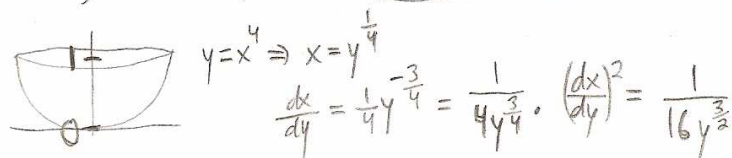 1
0
y=x^4 ⇒ x=y^{1/4}
dx/dy = 1/4 y^{-3/4} = 1/(4y^{3/4}). (dx/dy)^2 = 1/(16y^{3/2})